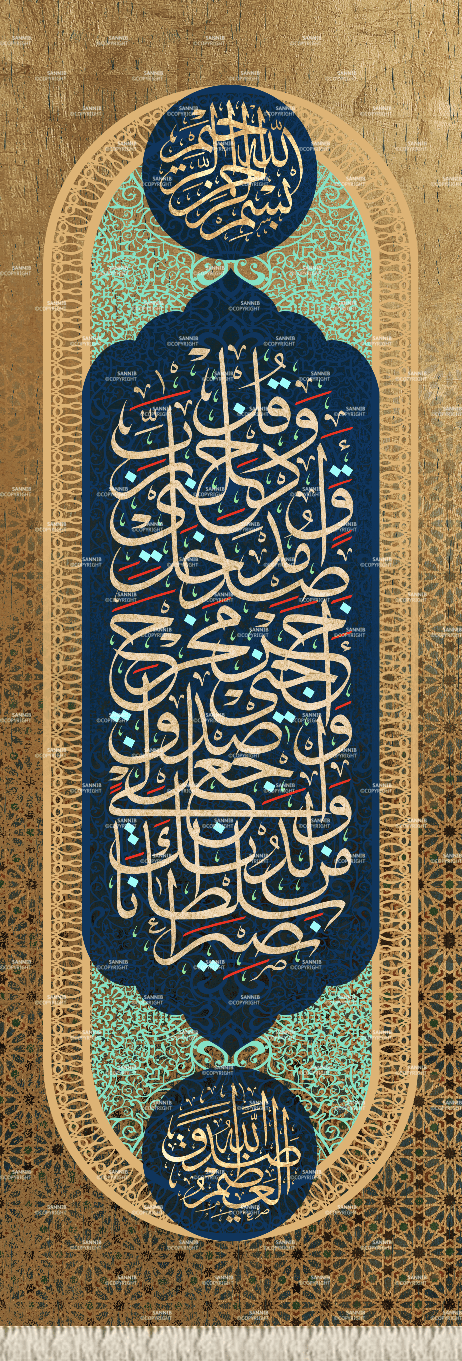 بِسْمِ اللَّهِ الرَّحْمَٰنِ الرَّحِيمِ
وَقُل رَّبِّ
أَدْخِلْنِي
مُدْخَلَ
صِدْقٍ
وَأَخْرِجْنِي مُخْرَجَ
صِدْقٍ
وَاجْعَل لِّي
مِن لَّدُنكَ
سُلْطَانًا
نَّصِيرًا
صدق الله العظيم
SANNIB
©COPYRIGHT